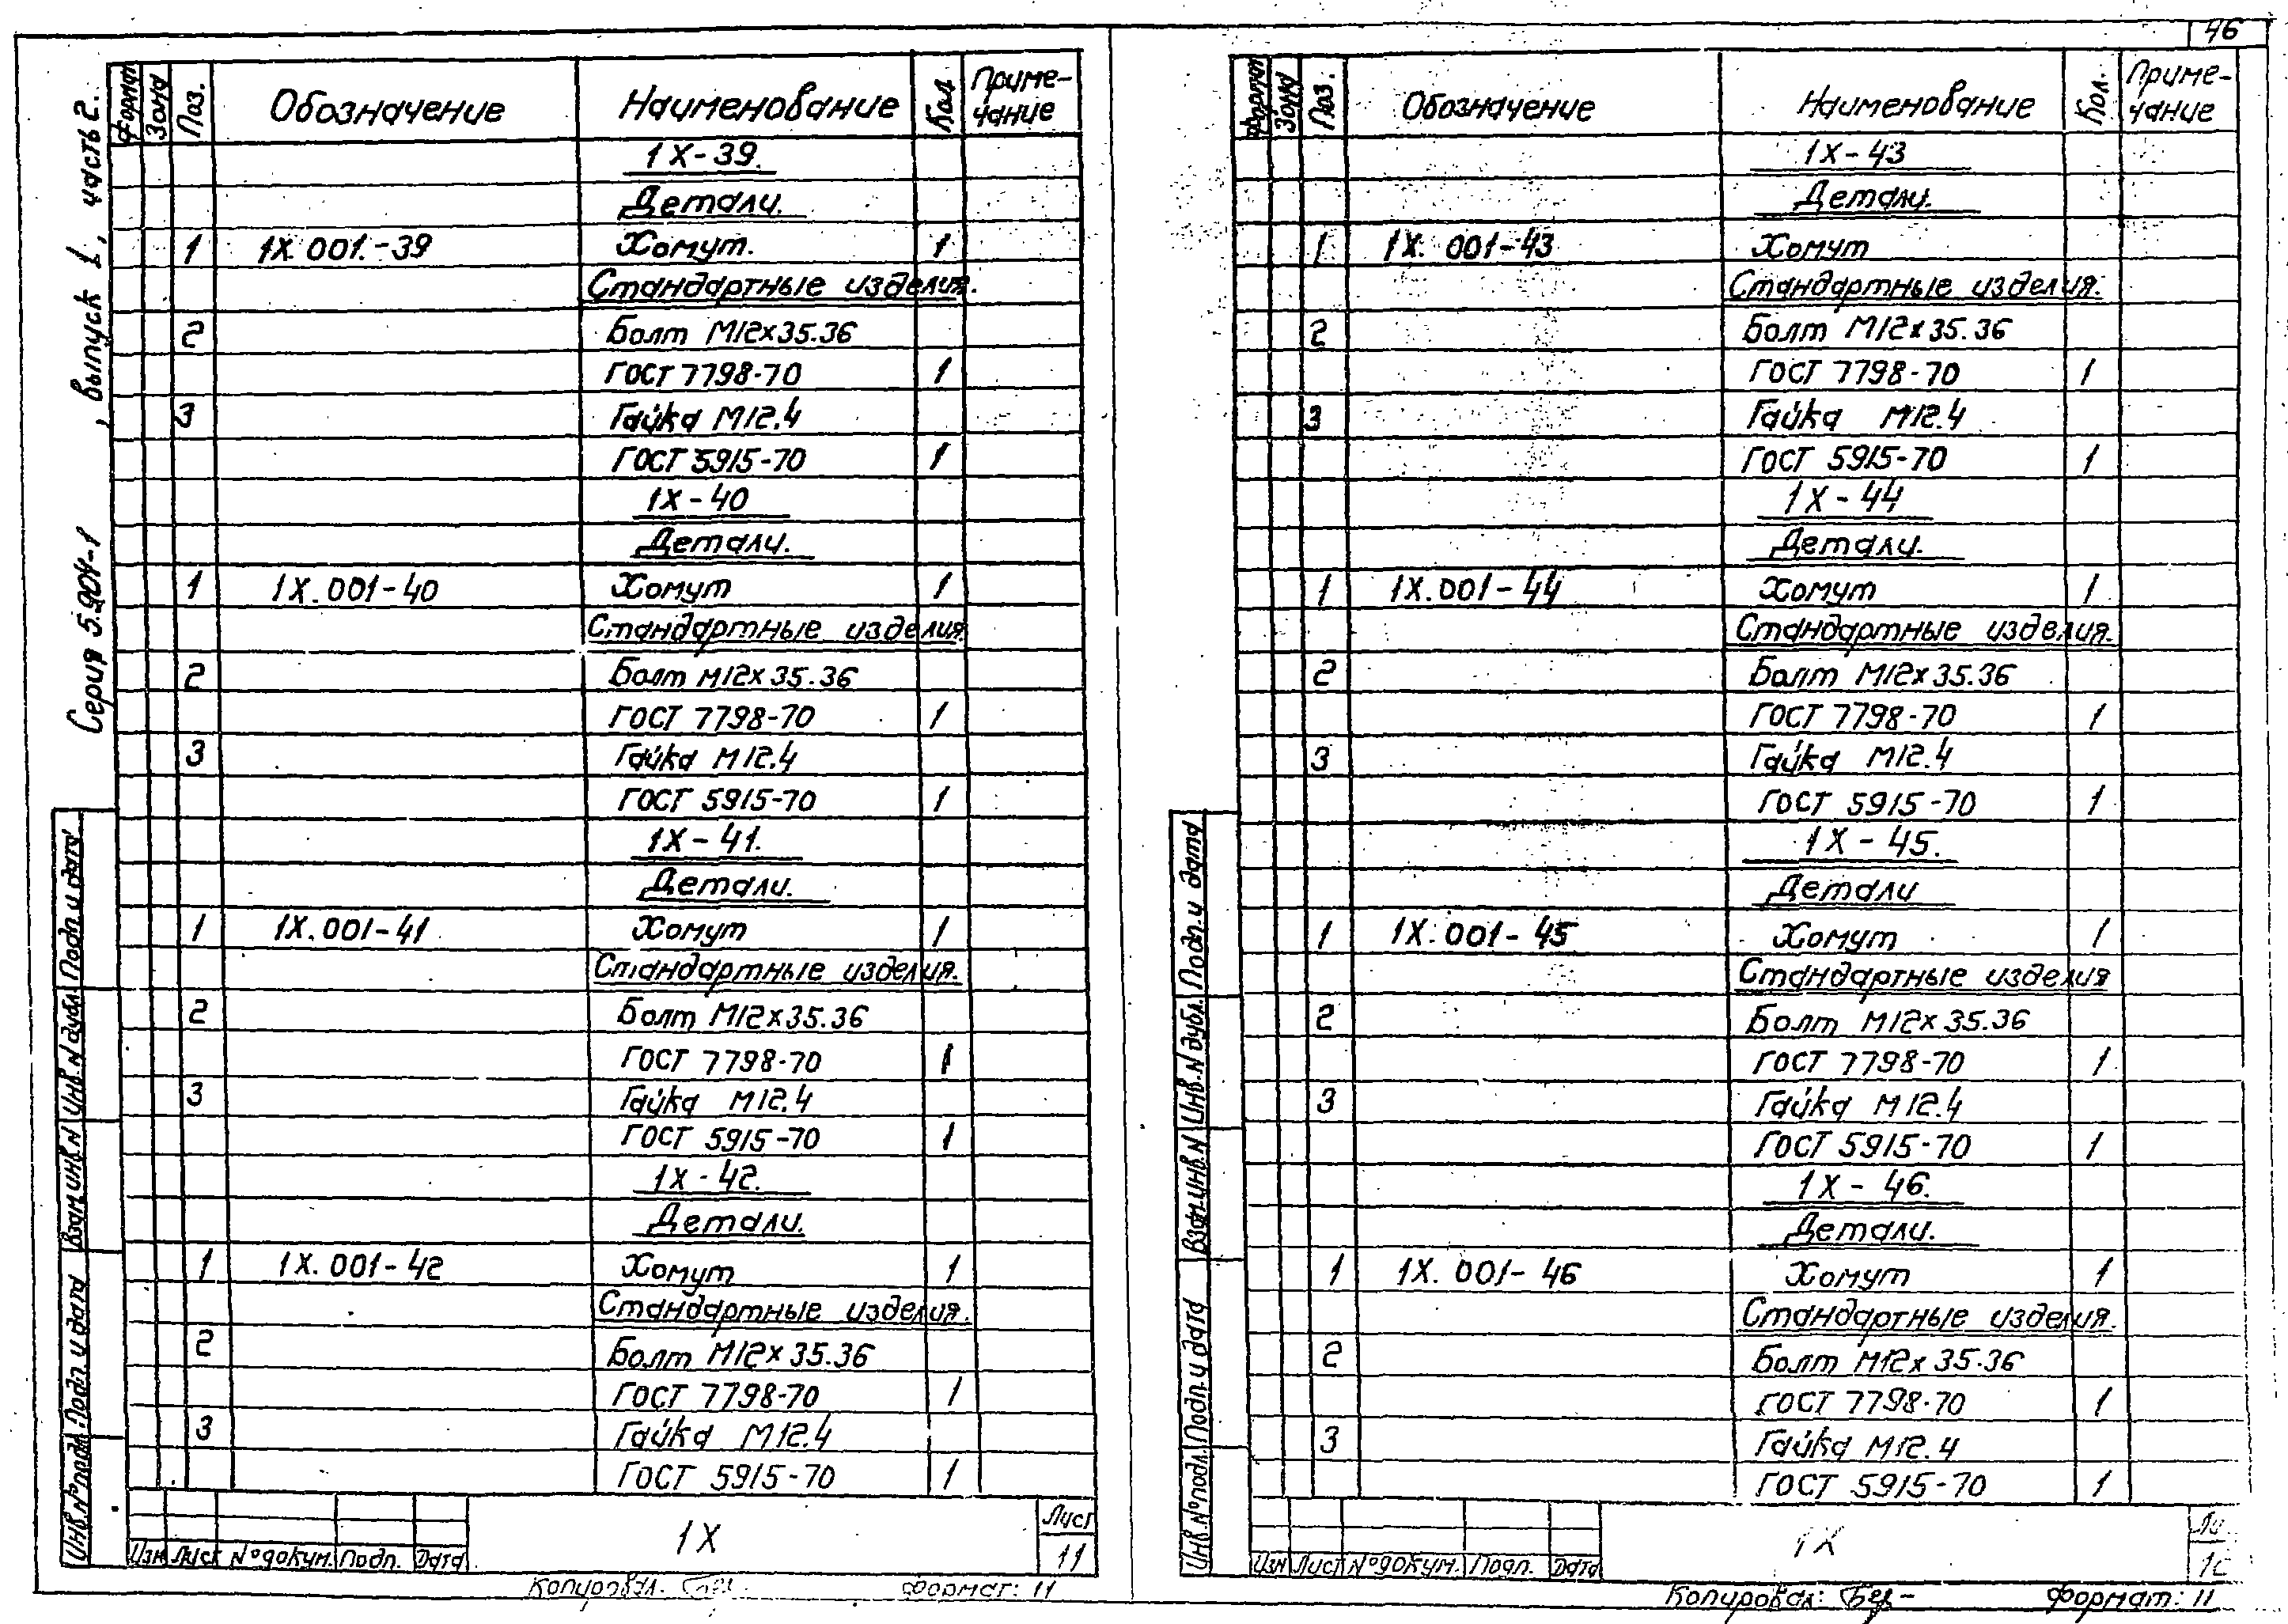 46
Серия 5.904-1 , выпуск 1, часть 2.
Формат Зона Поз. Обозначение Наименование Кол. Приме-
чание
1Х-39.
Детали.
1 1Х.001.-39 Хомут. 1
Стандартные изделия.
2 Болт М12х35.36
ГОСТ 7798-70 1
3 Гайка М12.4
ГОСТ 5915-70 1
1Х-40
Детали.
1 1Х.001-40 Хомут 1
Стандартные изделия.
2 Болт М12х35.36
ГОСТ 7798-70 1
3 Гайка М12.4
ГОСТ 5915-70 1
1Х-41.
Детали.
1 1Х.001-41 Хомут 1
Стандартные изделия.
2 Болт М12х35.36
ГОСТ 7798-70 1
3 Гайка М12.4
ГОСТ 5915-70 1
1Х-42.
Детали.
1 1Х.001-42 Хомут 1
Стандартные изделия.
2 Болт М12х35.36
ГОСТ 7798-70 1
3 Гайка М12.4
ГОСТ 5915-70 1
Инв.№подл. Подп. и дата Взам.инв.N Инв.N дубл. Подп. и дата
Изм Лист №докум. Подп. Дата
1Х
Лист
11
Копировал. Формат: 11
Формат Зона Поз. Обозначение Наименование Кол. Приме-
чание
1Х-43
Детали.
1 1Х.001-43 Хомут
Стандартные изделия.
2 Болт М12х35.36
ГОСТ 7798-70 1
3 Гайка М12.4
ГОСТ 5915-70 1
1Х-44
Детали.
1 1Х.001-44 Хомут 1
Стандартные изделия.
2 Болт М12х35.36
ГОСТ 7798-70 1
3 Гайка М12.4
ГОСТ 5915-70 1
1Х-45.
Детали
1 1Х.001-45 Хомут 1
Стандартные изделия
2 Болт М12х35.36
ГОСТ 7798-70 1
3 Гайка М12.4
ГОСТ 5915-70 1
1Х-46.
Детали.
1 1Х.001-46 Хомут 1
Стандартные изделия.
2 Болт М12х35.36
ГОСТ 7798-70 1
3 Гайка М12.4
ГОСТ 5915-70 1
Инв.№подл. Подп. и дата Взам.инв.N Инв.N дубл. Подп. и дата
Изм Лист №докум. Подп. Дата
1Х
Копировал: Формат: 11